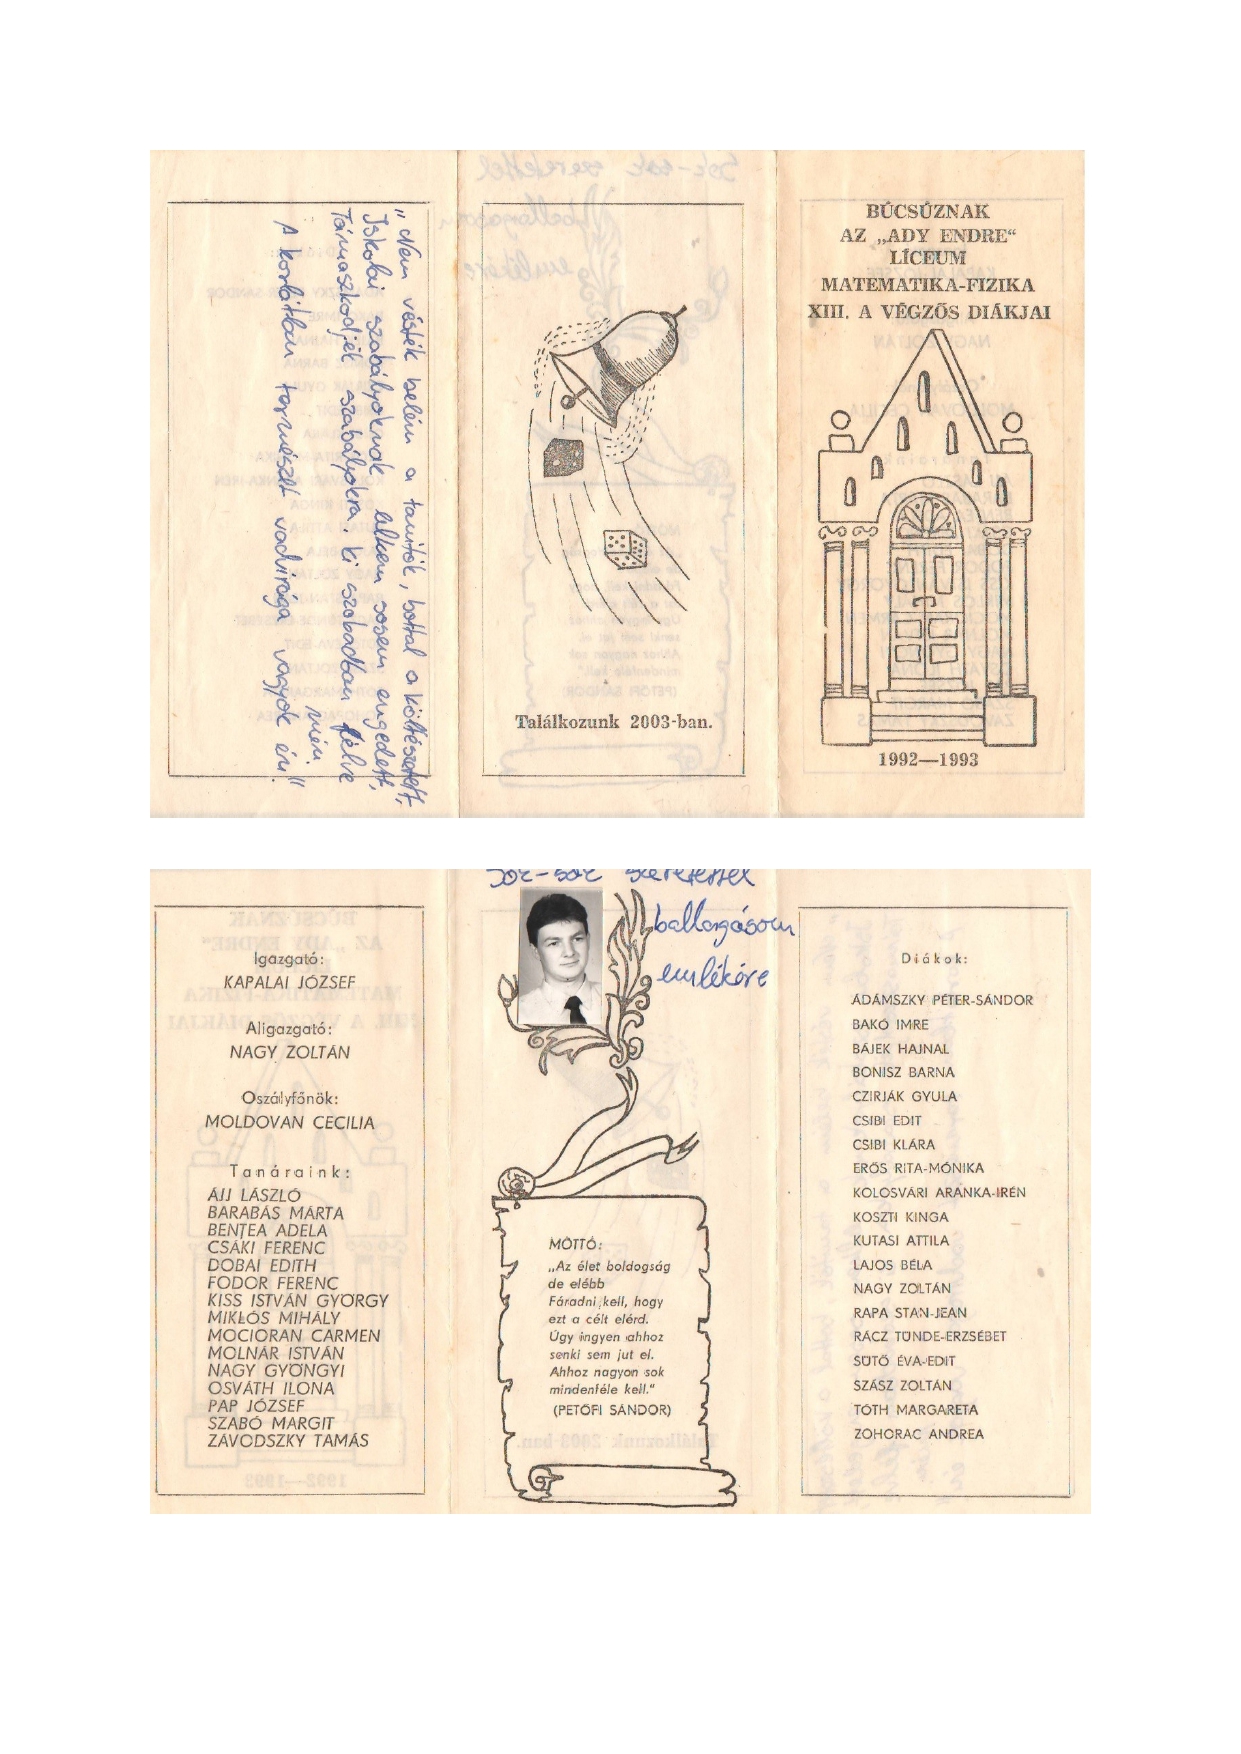 „Nem vésték belém a tanítók, bottal a költészetet,
Iskolai szabályoknak lelkem sosem engedett,
Támaszkodjék szabályokra, ki szabadban félve
mén
A korlátlan természet vadvirága vagyok én!"
Találkozunk 2003-ban.
BÚCSÚZNAK
AZ „ADY ENDRE“
LÍCEUM
MATEMATIKA-FIZIKA
XIII. A VÉGZŐS DIÁKJAI
1992—1993
Igazgató:
KAPALAI JÓZSEF
Aligazgató:
NAGY ZOLTÁN
Oszályfőnök:
MOLDOVAN CECILIA
Tanáraink:
ÁJJ LÁSZLÓ
BARABÁS MÁRTA
BENȚEA ADELA
CSÁKI FERENC
DOBAI EDITH
FODOR FERENC
KISS ISTVÁN GYÖRGY
MIKLÓS MIHÁLY
MOCIORAN CARMEN
MOLNÁR ISTVÁN
NAGY GYÖNGYI
OSVÁTH ILONA
PAP JÓZSEF
SZABÓ MARGIT
ZÁVODSZKY TAMÁS
Sok-sok szeretettel
ballagásom
emlékére
MOTTÓ:
„Az élet boldogság
de elébb
Fáradni kell, hogy
ezt a célt elérd.
Úgy ingyen ahhoz
senki sem jut el.
Ahhoz nagyon sok
mindenféle kell.“
(PETŐFI SÁNDOR)
Diákok:
ÁDÁMSZKY PÉTER-SÁNDOR
BAKÓ IMRE
BÁJEK HAJNAL
BONISZ BARNA
CZIRJÁK GYULA
CSIBI EDIT
CSIBI KLÁRA
ERŐS RITA-MÓNIKA
KOLOSVÁRI ARANKA-IRÉN
KOSZTI KINGA
KUTASI ATTILA
LAJOS BÉLA
NAGY ZOLTÁN
RAPA STAN-JEAN
RÁCZ TÜNDE-ERZSÉBET
SÜTŐ ÉVA-EDIT
SZÁSZ ZOLTÁN
TÓTH MARGARETA
ZOHORAC ANDREA